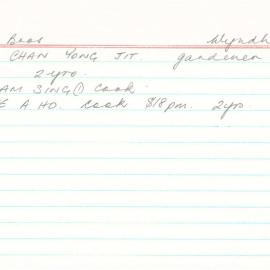 Bros Wyndh
CHAN YONG JIT. gardener
2 yrs.
AM SING (1) Cook.
E A HO. Cook $18 pm. 2 yrs